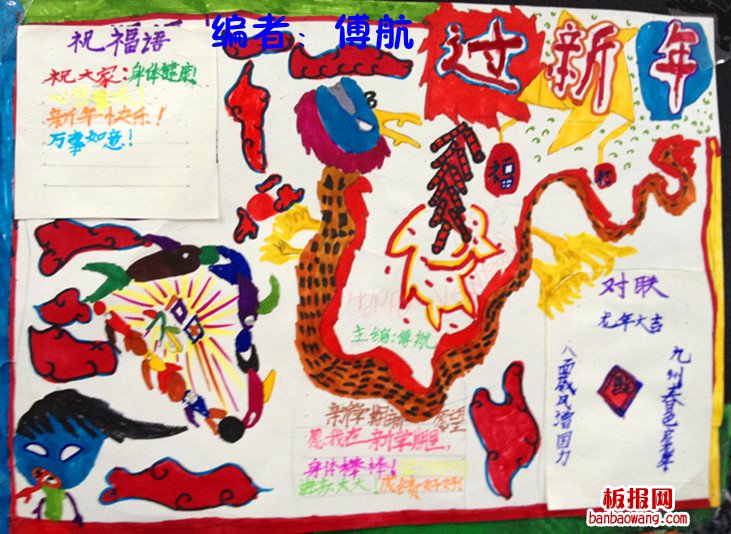 编者：傅航
过新年
祝福语
祝大家：身体健康！
新年快乐！
万事如意！
福
主编：傅航
对联
九州春色
八面威风增国力
新学期新愿望
愿我在新学期里，
身体棒棒！
成绩好好！
板报网
banbaowang.com